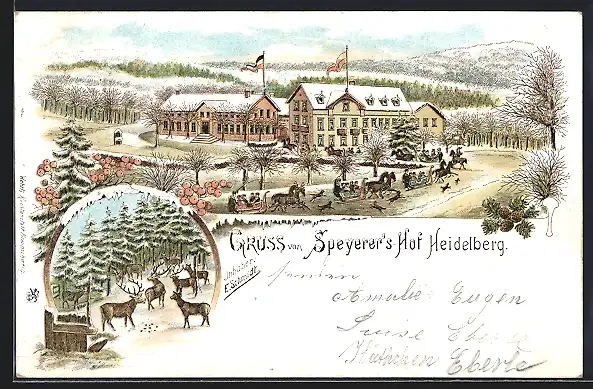 GRUSS von Speyerer's-Hof Heidelberg.
Inhaber:
E. Schmidt.
senden
Amalie Eugen
Luise Eberle
Käthchen Eberle